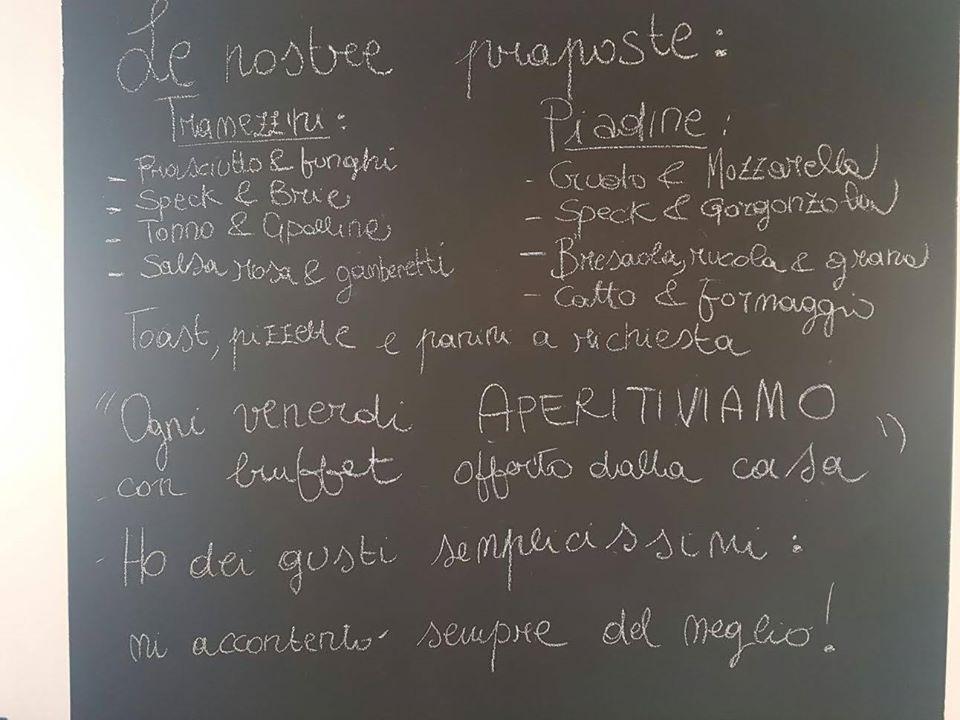 Le nostre proposte:
Tramezzini:
- Prosciutto & funghi
- Speck & Brie
- Tonno & Cipolline
- Salsa rosa & gamberetti
Piadine:
- Crudo & Mozzarella
- Speck & Gorgonzola
- Bresaola, rucola & grana
- Cotto & Formaggio
Toast, pizzette e panini a richiesta
"Ogni venerdi APERITIVIAMO
con buffet offerto dalla casa"
Ho dei gusti semplicissimi:
mi accontento sempre del meglio!